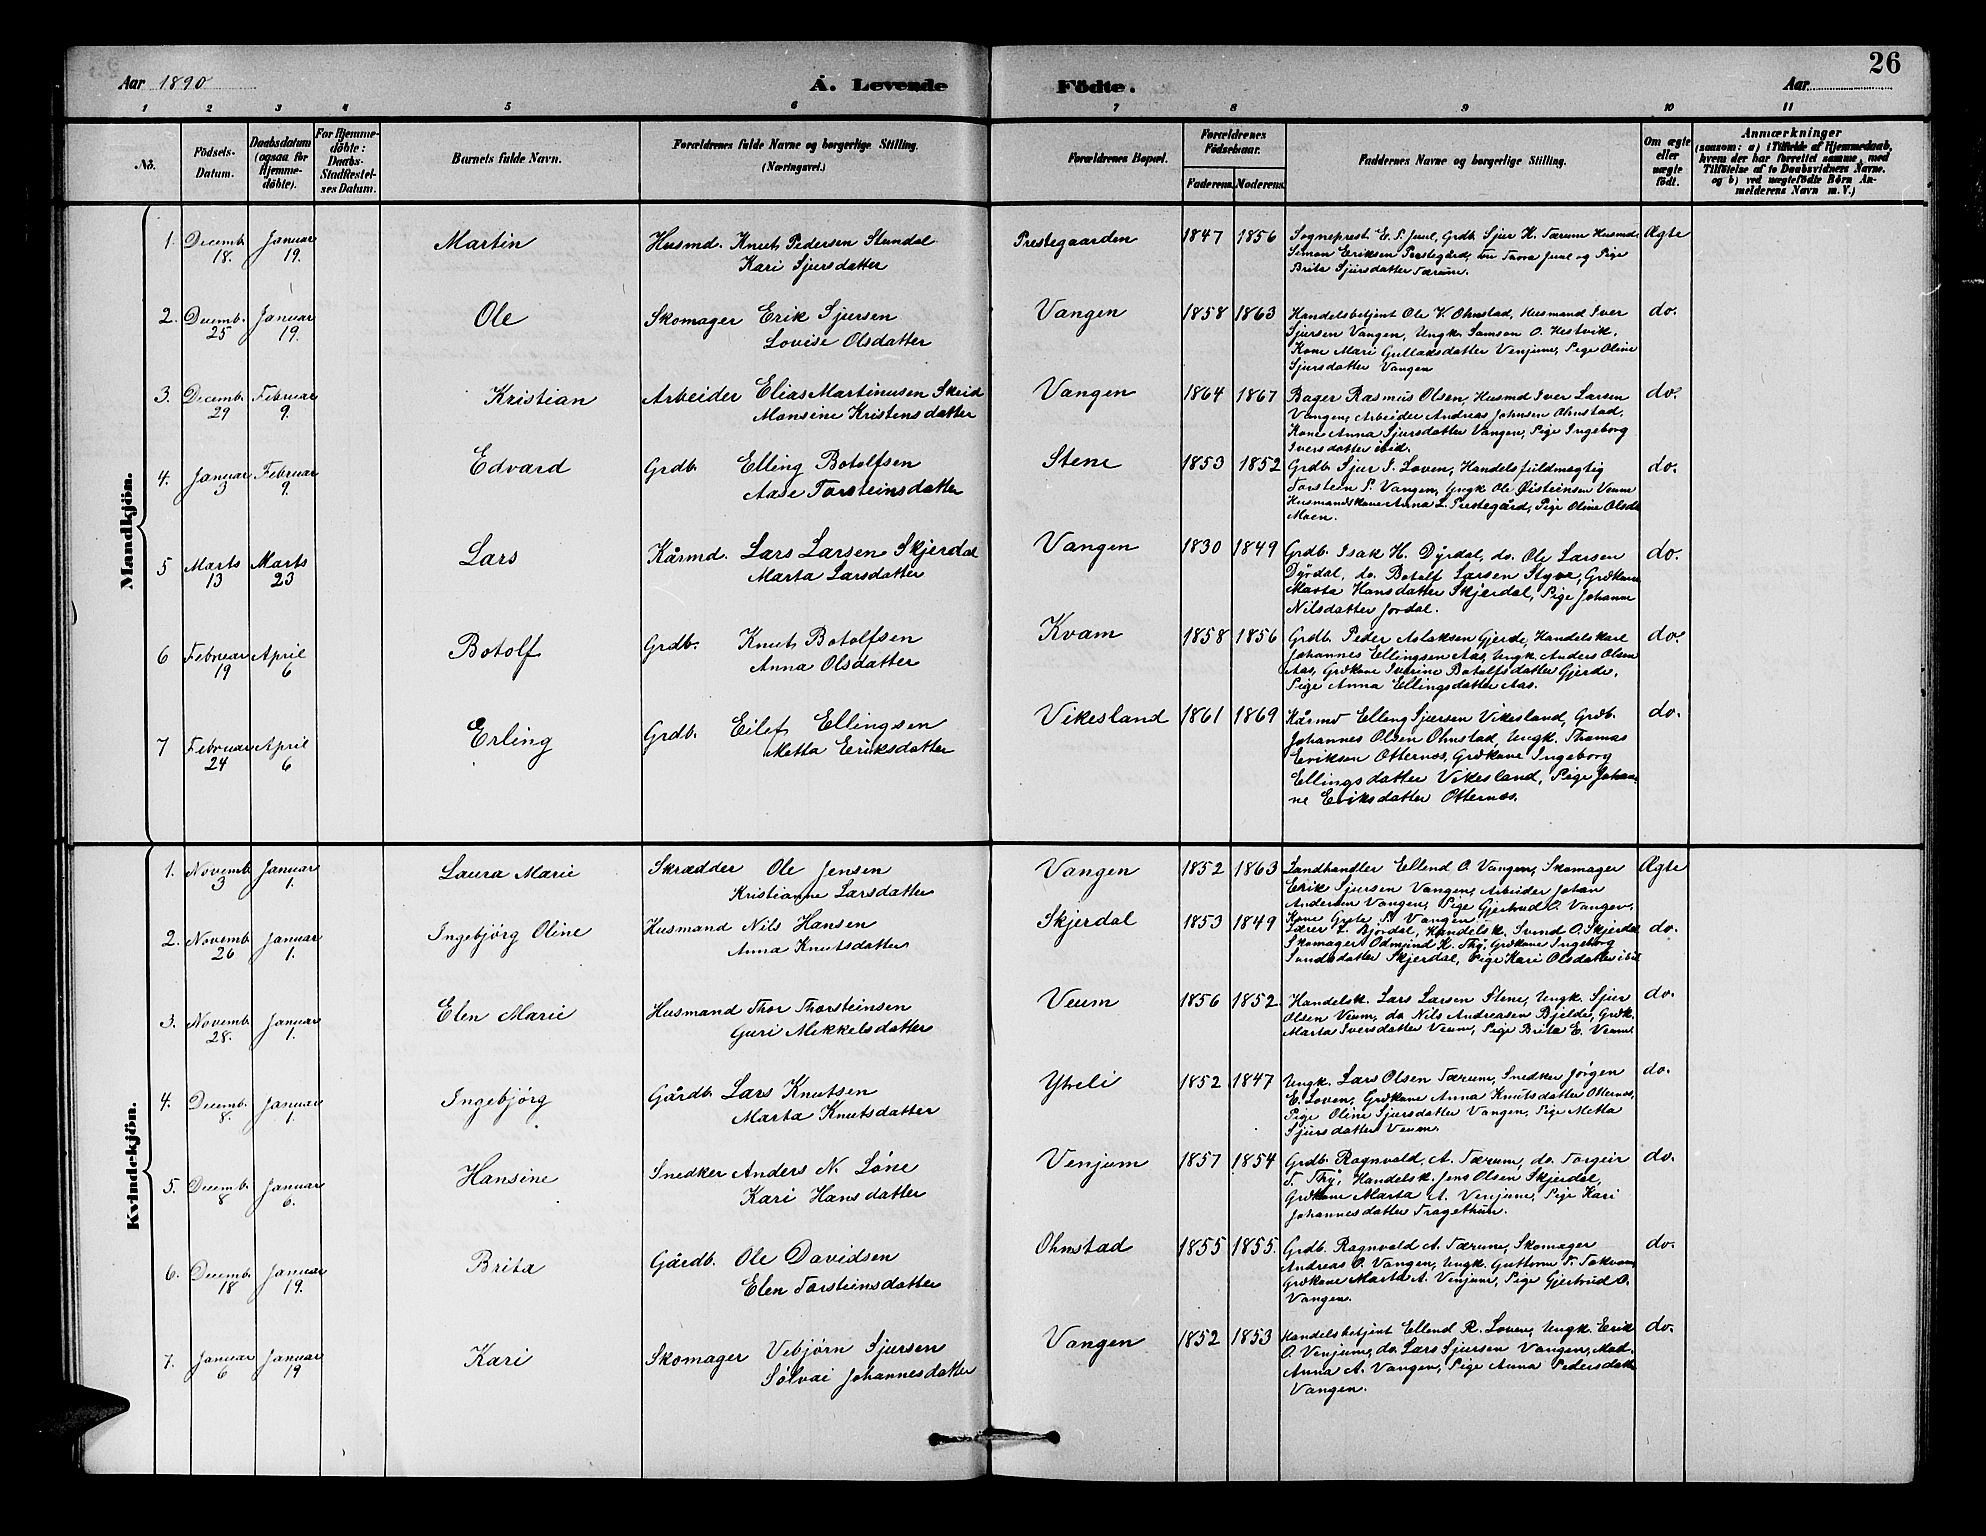 26
Aar 1890
A. Levende
Födte.
Aar
1 2 3 4 5 6 7 8 9 10 11
No.
Födsels-Datum.
Daabsdatum (ogsaa for Hjemmedöbte).
For Hjemmedöbte: Daabs-Stadfestelses Datum.
Barnets fulde Navn.
Forældrenes fulde Navne og borgerlige Stilling. (Næringsvei.)
Forældrenes Bopæl.
Forældrenes Födselsaar.
Faderens. Moderens.
Faddernes Navne og borgerlige Stilling.
Om ægte eller uægte födt.
Anmærkninger
(saasom: a) i Tilfælde af Hjemmedaab, hvem der har forrettet samme, med Tilföielse af to Daabsvidners Navne. og b) ved uægtefödte Börn Anmelderens Navn m. V.)
Mandkjön.
1. Decemb. 18. Januar 19. Martin Husmd. Knut Pedersen Stundal
Kari Sjursdatter
Prestegaarden 1847 1856 Sogneprest E. P. Juul, Grdb. Sjur K. Tærum Husmd.
Simon Eriksen Prestegård, Fru Thora Juul og Pige
Brita Sjursdatter Tærum.
Ægte
2. Decemb. 25 Januar 19. Ole Skomager Erik Sjursen
Lovise Olsdatter
Vangen 1858 1863 Handelsbetjent Ole K. Ohnstad, Husmand Iver
Sjursen Vangen, Ungk. Samson O. Hestvik,
Kone Mari Gullaksdatter Venjum, Pige Oline
Sjursdatter Vangen
do.
3. Decemb. 29 Februar 9. Kristian Arbeider Elias Martinusen Skeid
Monsine Kristensdatter
Vangen 1864 1867 Bager Rasmus Olsen, Husmd Iver Larsen
Vangen, Arbeider Andreas Johnsen Ohnstad,
Kone Anna Sjursdatter Vangen, Pige Ingeborg
Iversdatter ibid.
do.
4. Januar 3 Februar 9. Edvard Grdb. Elling Botolfsen
Aase Torsteinsdatter
Stene 1853 1852 Grdb. Sjur S. Loven, Handelsfuldmegtig
Torstein P. Vangen, Ungk Ole Øisteinsen Veum
Husmandskone Anna L. Prestegård, Pige Oline Olsd.
Moen.
do.
5 Marts 13 Marts 23 Lars Kårmd. Lars Larsen Skjerdal
Marta Larsdatter
Vangen 1830 1849 Grdb. Isak H. Dyrdal, do. Ole Larsen
Dyrdal, do. Botolf Larsen Styve, Grdkone
Marta Hansdatter Skjerdal, Pige Johanne
Nilsdatter Jordal.
do.
6 Februar 19 April 6 Botolf Grdb. Knut Botolfsen
Anna Olsdatter
Kvam 1858 1856 Grdb. Peder Aslaksen Gjerde, Handelskarl
Johannes Ellingsen Aas, Ungk. Anders Olsen
Aas, Grdkone Iverine Botolfsdatter Gjerde,
Pige Anna Ellingsdatter Aas.
do.
7 Februar 24 April 6 Erling Grdb. Eilef Ellingsen
Metta Eriksdatter
Vikesland 1861 1869 Kårmd Elling Sjursen Vikesland, Grdb.
Johannes Olsen Ohnstad, Ungk. Thomas
Eriksen Otternes, Grdkone Ingeborg
Ellingsdatter Vikesland, Pige Johan-
ne Eriksdatter Otternes.
do.
Kvindekjön.
1. Novemb. 3 Januar 1. Laura Marie Skrædder Ole Jensen
Kristianne Larsdatter
Vangen 1852 1863 Landhandler Ellend O. Vangen, Skomager
Erik Sjursen Vangen, Arbeider Johan
Andersen Vangen, Pige Gjertrud O. Vangen,
Kone Gyda P. Vangen.
Ægte
2. Novemb. 26 Januar 1. Ingebjørg Oline Husmand Nils Hansen
Anna Knutsdatter
Skjerdal 1853 1849 Lærer L. Bjordal, Handelsk. Svend O. Skjerdal
Skomager Odmund K. Thy, Grdkone Ingeborg
Svendsdatter Skjerdal, Pige Kari Olsdatter ibid
do.
3. Novemb. 28. Januar 1. Elen Marie Husmand Thor Thorsteinsen
Guri Mikkelsdatter
Veum 1856 1852 Handelsk. Lars Larsen Stene, Ungk. Sjur
Olsen Veum, do Nils Andreasen Bjelde, Grdk.
Marta Iversdatter Veum, Pige Brita E. Veum.
do.
4. Decemb. 8. Januar 1. Ingebjørg Gårdb. Lars Knutsen
Marta Knutsdatter
Ytreli 1852 1847 Ungk. Lars Olsen Tærum, Snedker Jørgen
E. Loven, Grdkone Anna Knutsdatter Otternes,
Pige Oline Sjursdatter Vangen, Pige Metta
Sjursdatter Veum.
do.
5. Decemb. 8 Januar 6. Hansine Snedker Anders N. Løne
Kari Hansdatter
Venjum 1857 1854 Grdb. Ragnvald A. Tærum, do. Torgeir
T. Thy, Handelsk. Jens Olsen Skjerdal,
Grdkone Marta A. Venjum, Pige Kari
Johannesdatter Fragethun.
do.
6. Decemb. 18 Januar 19. Brita Gårdb. Ole Davidsen
Elen Torsteinsdatter
Ohnstad 1855 1855. Grdb. Ragnvald A. Tærum, Skomager
Andreas O. Vangen, Ungk. Guttorm T. Tokvam,
Grdkone Marta A. Venjum, Pige Gjertrud O.
Vangen.
do.
7. Januar 6 Januar 19 Kari Skomager Vebjørn Sjursen
Sølvai Johannesdatter
Vangen 1852 1853 Handelsbetjent Ellend R. Loven, Ungk. Erik
O. Venjum, do. Lars Sjursen Vangen, Mad.
Anna A. Vangen, Pige Anna Pedersdatter
Vangen.
do.